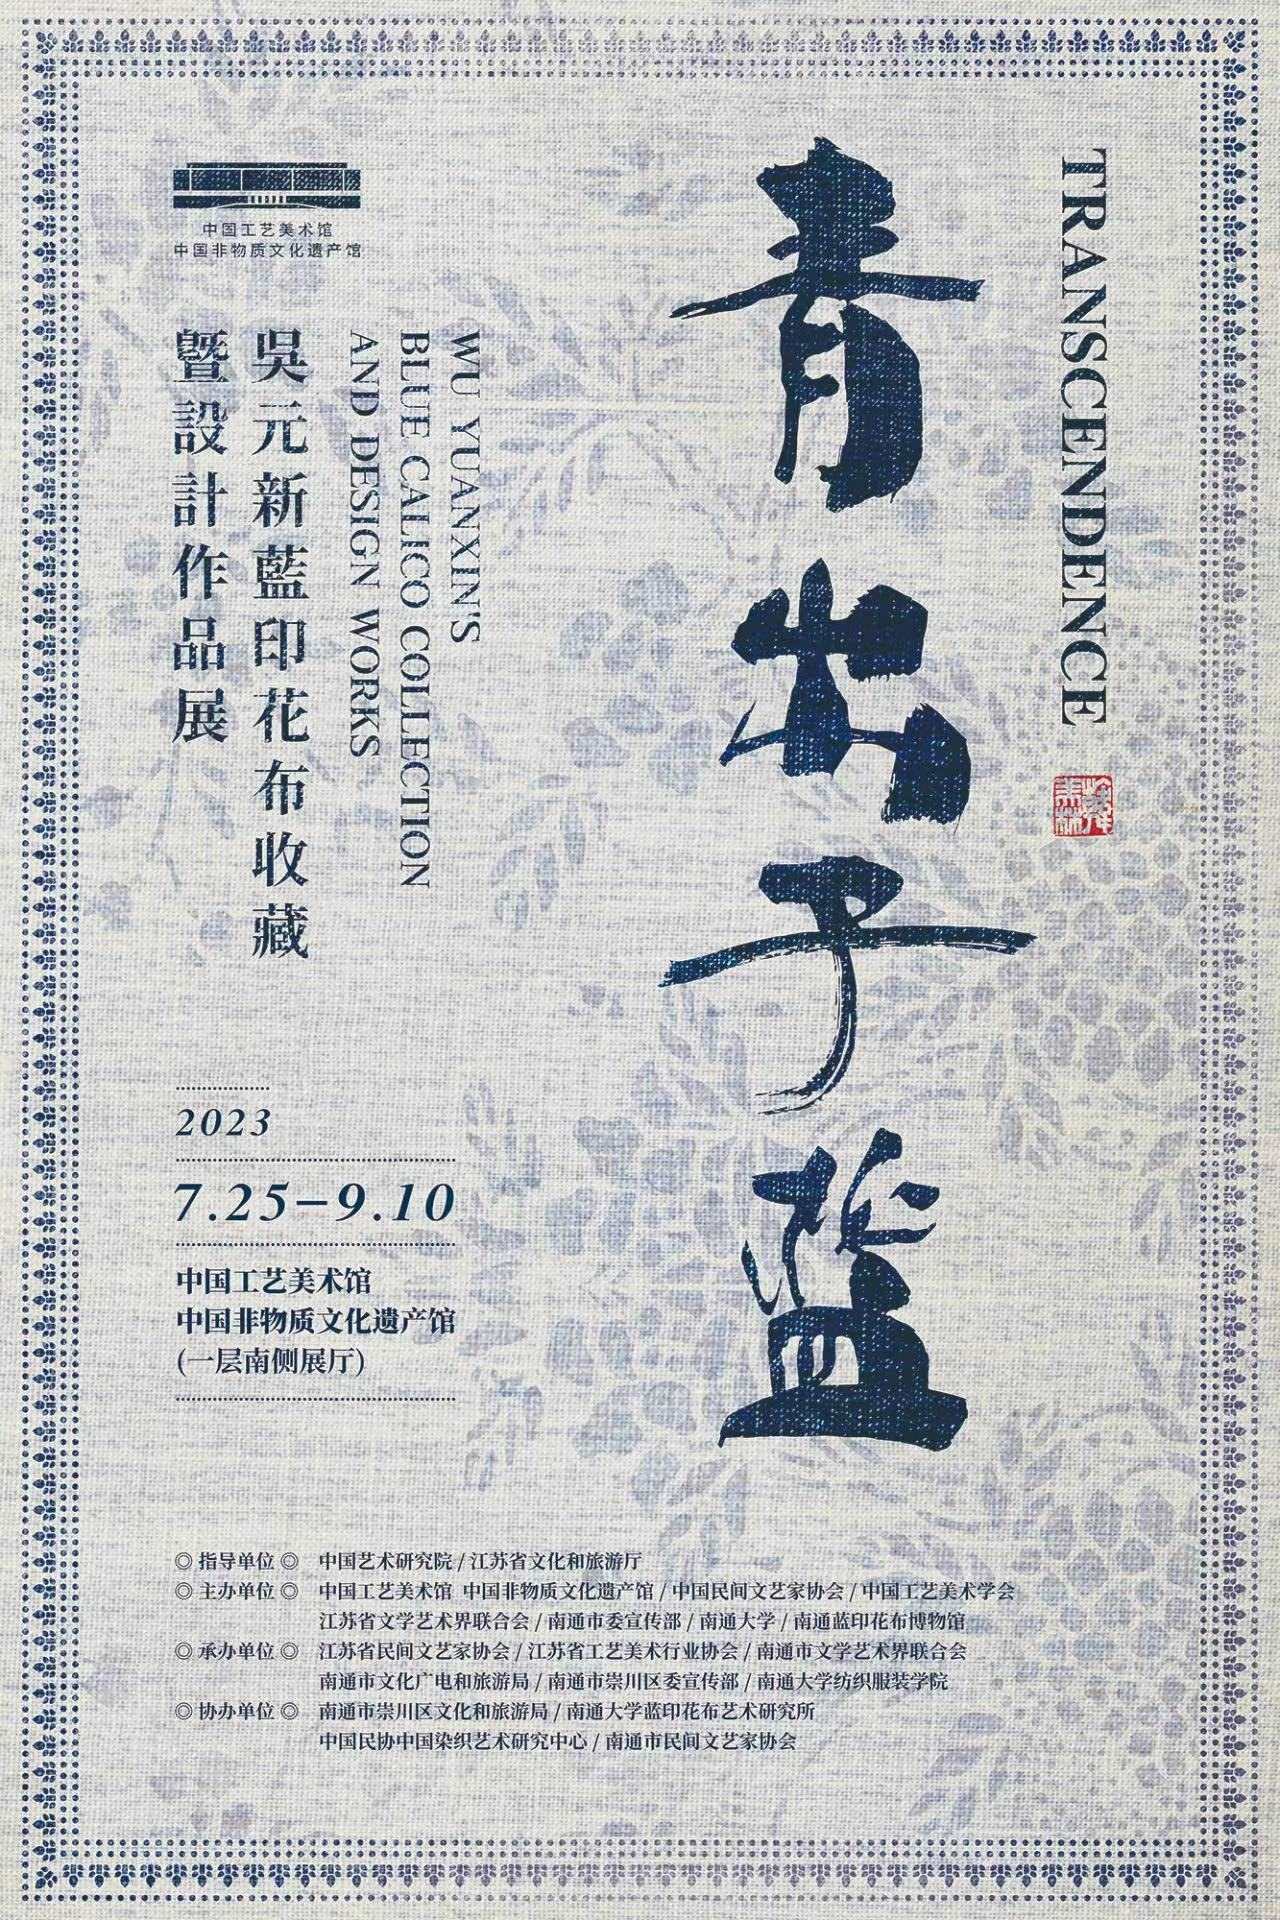 TRANSCENDENCE
青出于藍
中国工艺美术馆
中国非物质文化遗产馆
WU YUANXIN'S
BLUE CALICO COLLECTION
AND DESIGN WORKS
吳元新藍印花布收藏
暨設計作品展
2023
7.25-9.10
中国工艺美术馆
中国非物质文化遗产馆
(一层南侧展厅)
◎ 指导单位 ◎ 中国艺术研究院 / 江苏省文化和旅游厅
◎ 主办单位 ◎ 中国工艺美术馆 中国非物质文化遗产馆 / 中国民间文艺家协会 / 中国工艺美术学会
江苏省文学艺术界联合会 / 南通市委宣传部 / 南通大学 / 南通蓝印花布博物馆
◎ 承办单位 ◎ 江苏省民间文艺家协会 / 江苏省工艺美术行业协会 / 南通市文学艺术界联合会
南通市文化广电和旅游局 / 南通市崇川区委宣传部 / 南通大学纺织服装学院
◎ 协办单位 ◎ 南通市崇川区文化和旅游局 / 南通大学蓝印花布艺术研究所
中国民协中国染织艺术研究中心 / 南通市民间文艺家协会